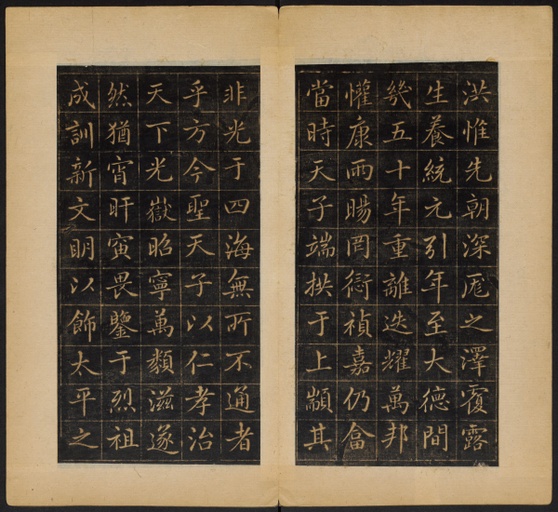 洪惟先朝深厖之澤覆露
生養統元引年至大德間
幾五十年重離迭耀萬邦
懽康雨暘罔愆禎嘉仍畣
當時天子端拱于上顒其
非光于四海無所不通者
乎方今聖天子以仁孝治
天下光嶽昭寧萬類滋遂
然猶宵旰寅畏鑒于烈祖
成訓新文明以飾太平之